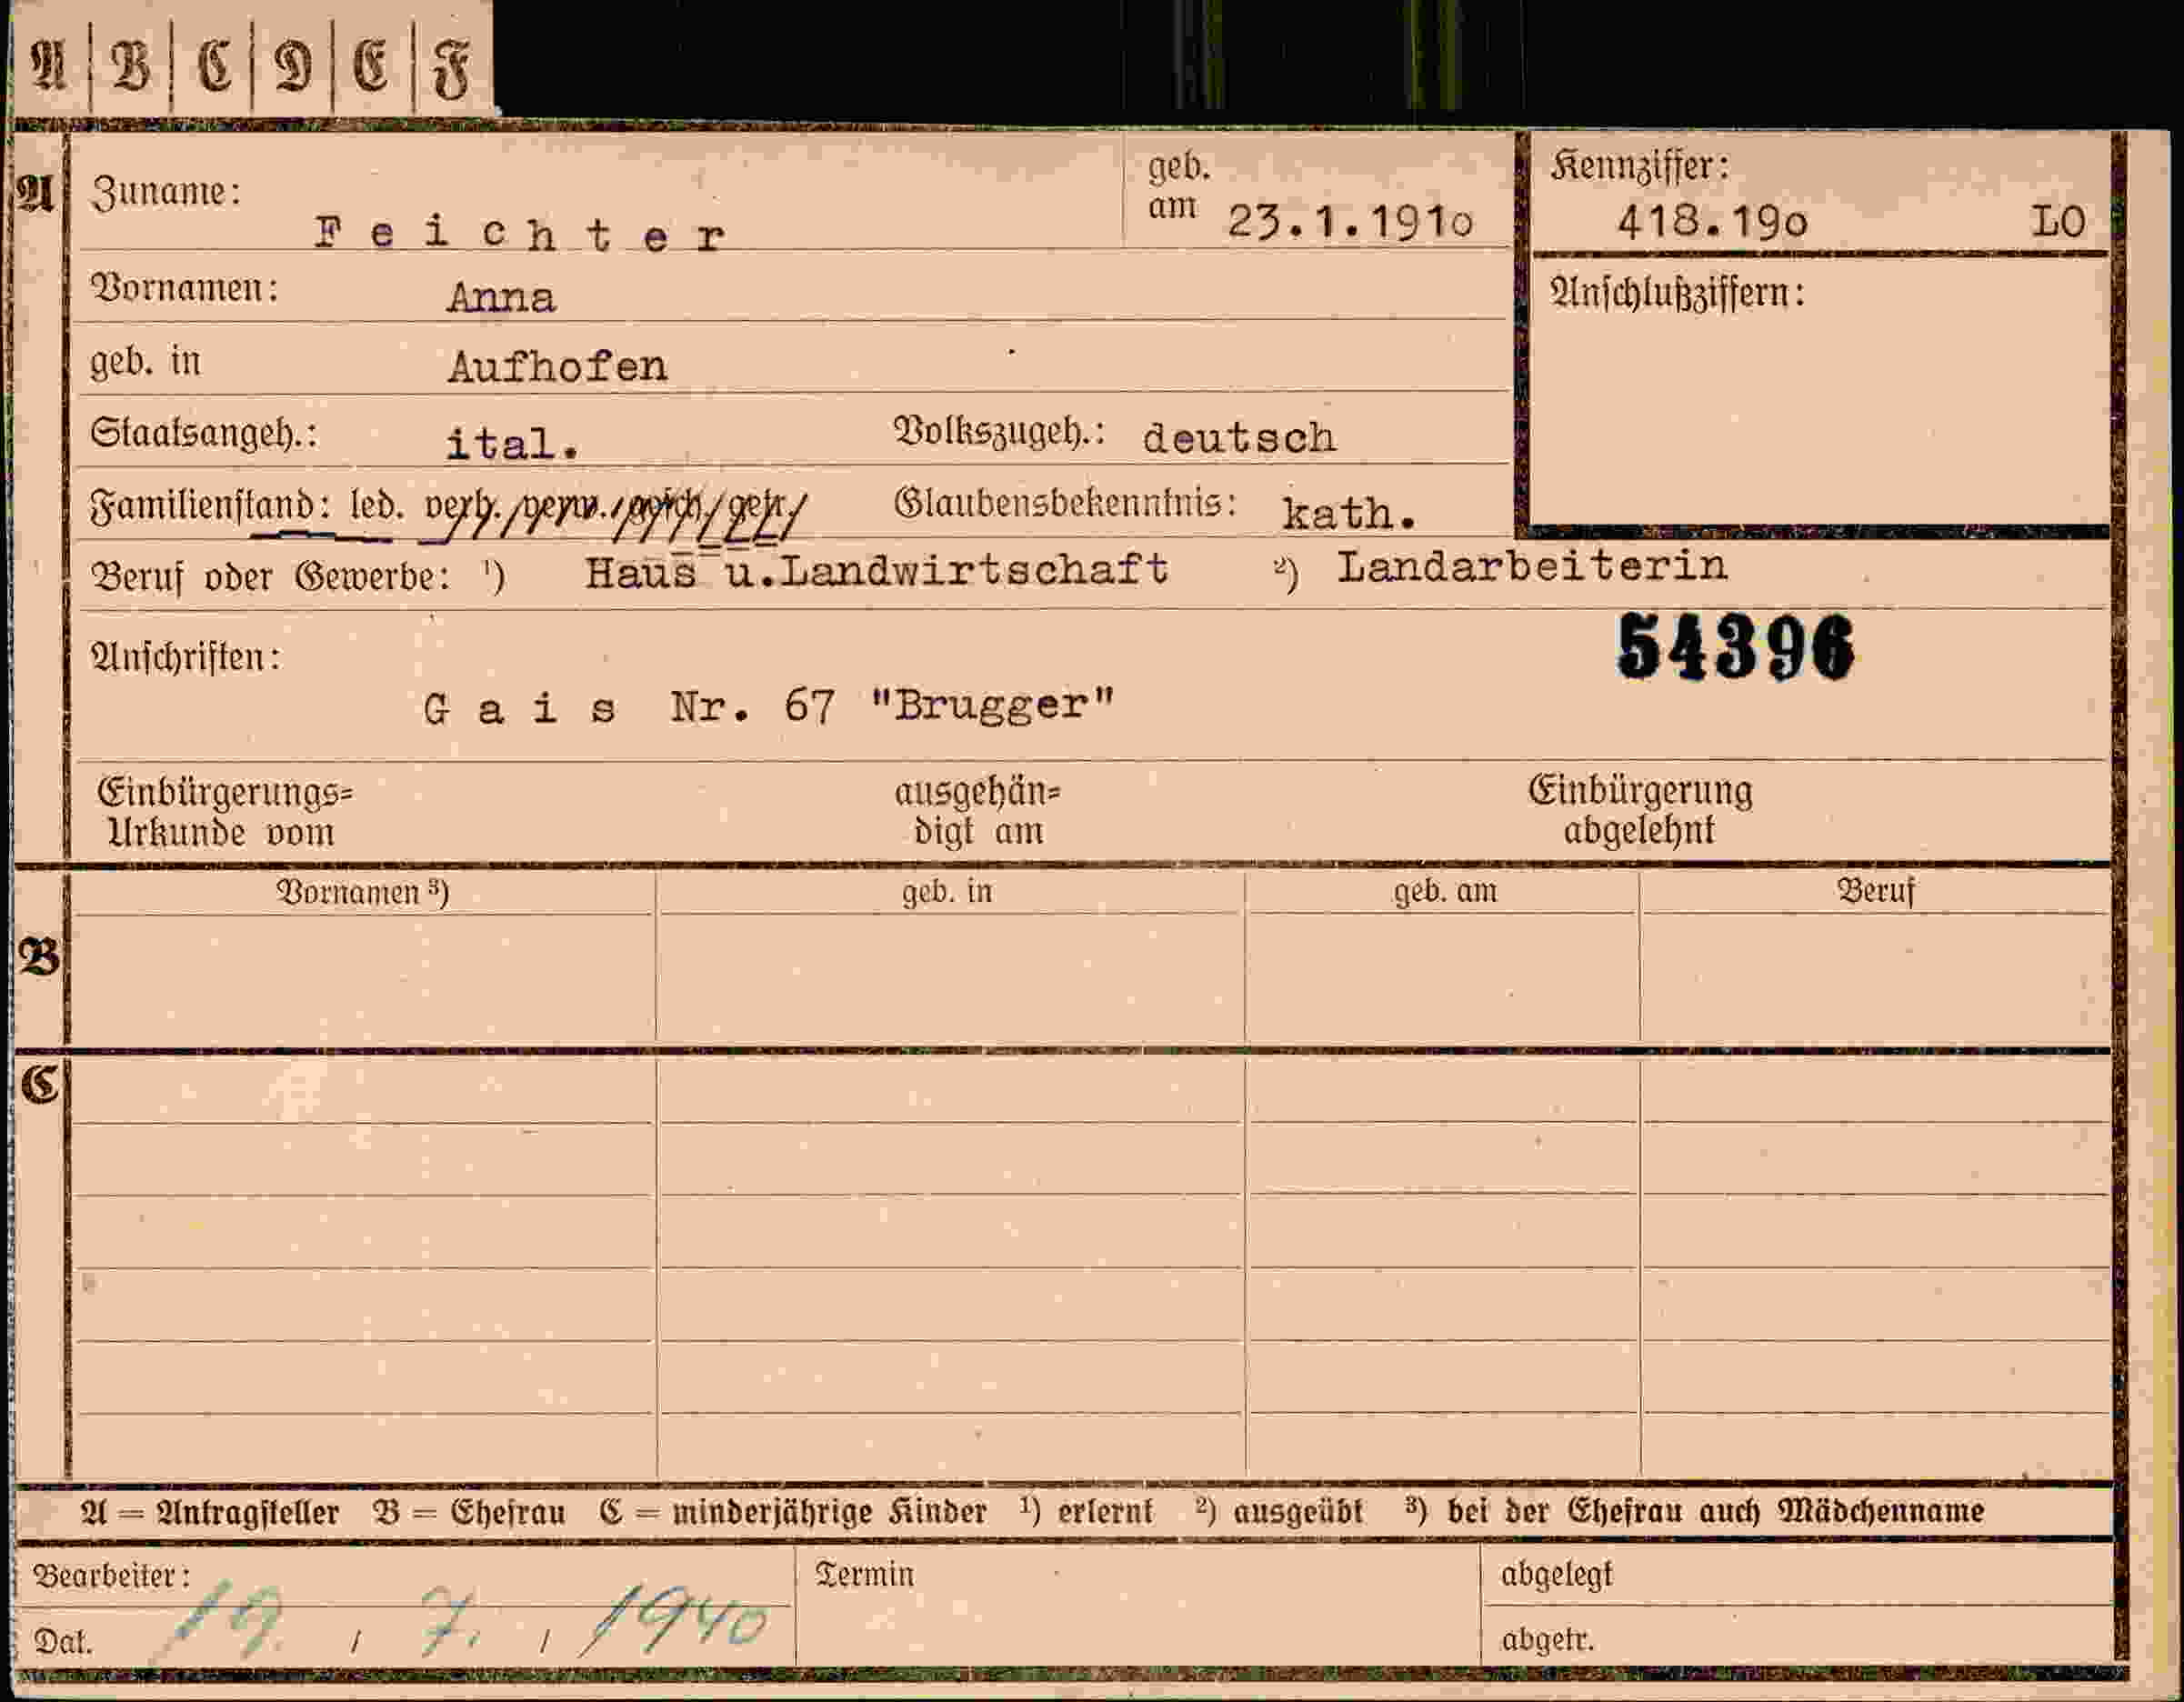 A B C D E F
A Zuname: Feichter geb. am 23.1.191o Kennziffer: 418.19o LO
Vornamen: Anna Anschlußziffern:
geb. in Aufhofen
Staatsangeh.: ital. Volkszugeh.: deutsch
Familienstand: led. verh. verw. gesch. getr. Glaubensbekenntnis: kath.
Beruf oder Gewerbe: ¹) Haus u.Landwirtschaft ²) Landarbeiterin
54396
Anschriften:
Gais Nr. 67 "Brugger"
Einbürgerungs= ausgehän= Einbürgerung
Urkunde vom digt am abgelehnt
Vornamen ³) geb. in geb. am Beruf
B
C
A = Antragsteller B = Ehefrau C = minderjährige Kinder ¹) erlernt ²) ausgeübt ³) bei der Ehefrau auch Mädchenname
Bearbeiter: Termin abgelegt
Dat. 19. / 7. / 1940 abgetr.